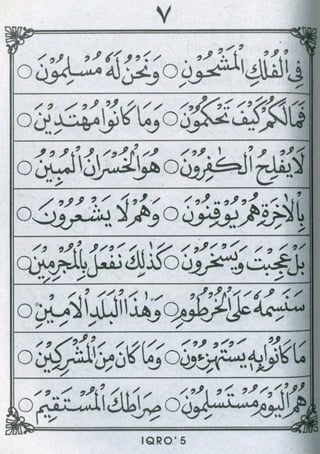 ٧
فِى الْفُلْكِ الْمَشْحُوْنِ ○ وَنَحْنُ لَهٗ مُسْلِمُوْنَ ○
فَمَالَكُمْ كَيْفَ تَحْكُمُوْنَ ○ وَمَا كَانُوْا مُهْتَدِيْنَ ○
لَا يُفْلِحُ الْكٰفِرُوْنَ ○ هُوَ الْخُسْرَانُ الْمُبِيْنُ ○
بِالْاٰخِرَةِ هُمْ يُوْقِنُوْنَ ○ وَهُمْ لَا يَشْعُرُوْنَ ○
بَلْ عَجِبْتَ وَيَسْخَرُوْنَ ○ كَذٰلِكَ نَفْعَلُ بِالْمُجْرِمِيْنَ ○
سَنَسِمُهٗ عَلَى الْخُرْطُوْمِ ○ وَهٰذَا الْبَلَدِ الْاَمِيْنِ ○
مَا كَانُوْا بِهٖ يَسْتَهْزِءُوْنَ ○ وَمَا كَانَ مِنَ الْمُشْرِكِيْنَ ○
هُمُ الْيَوْمَ مُسْتَسْلِمُوْنَ ○ صِرَاطَكَ الْمُسْتَقِيْمَ ○
IQRO' 5